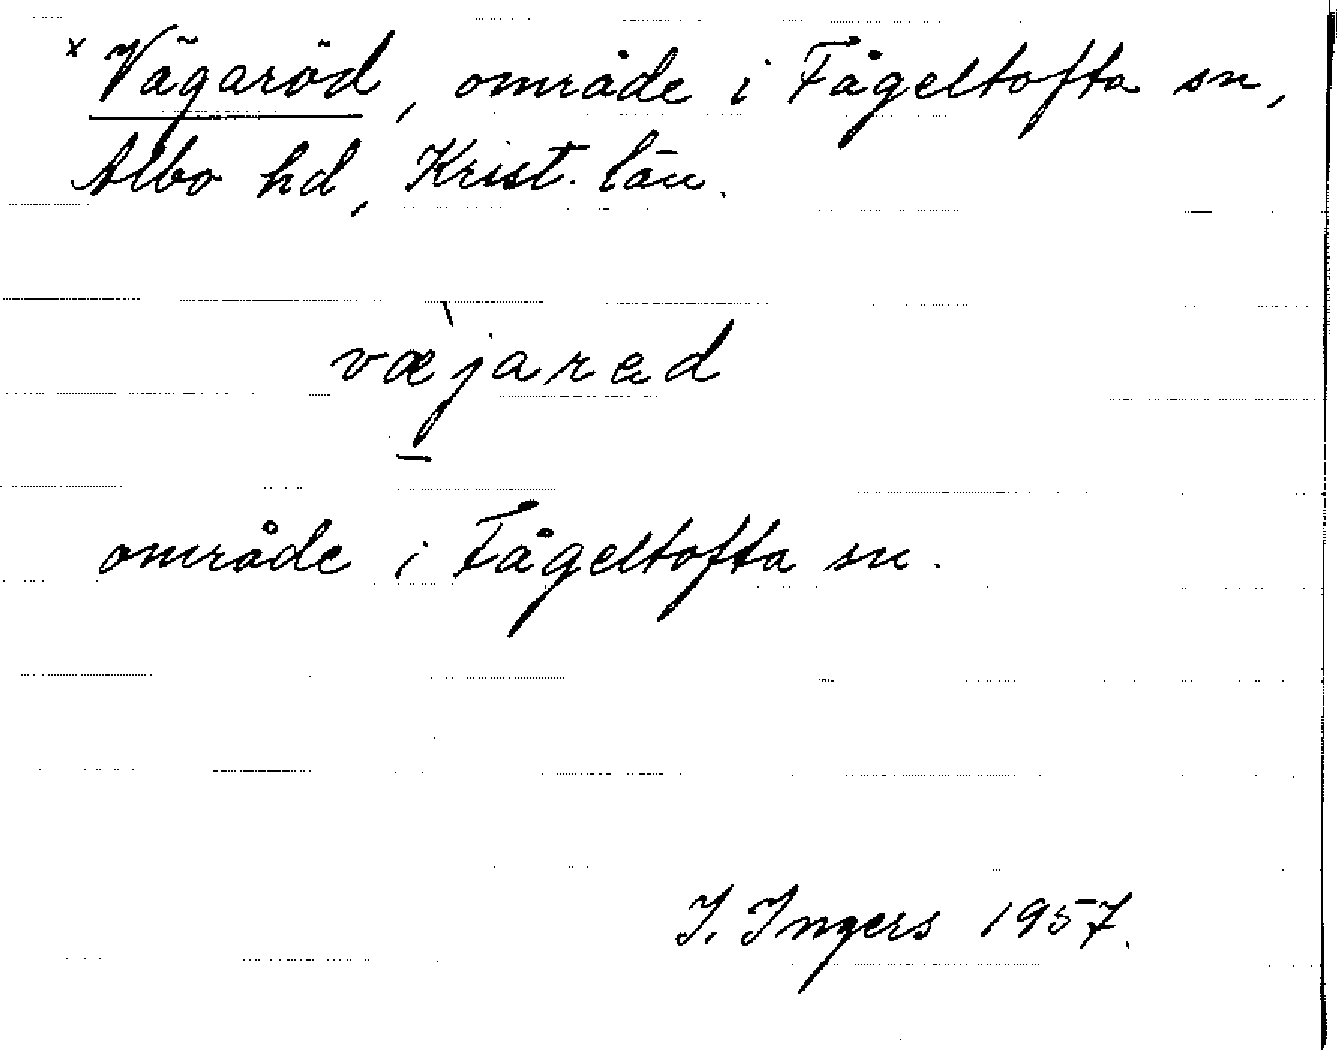 x Vägaröd, område i Fågeltofta sn,
Albo hd, Krist. län.
væ̀jarad
område i Fågeltofta sn.
I. Ingers 1957.